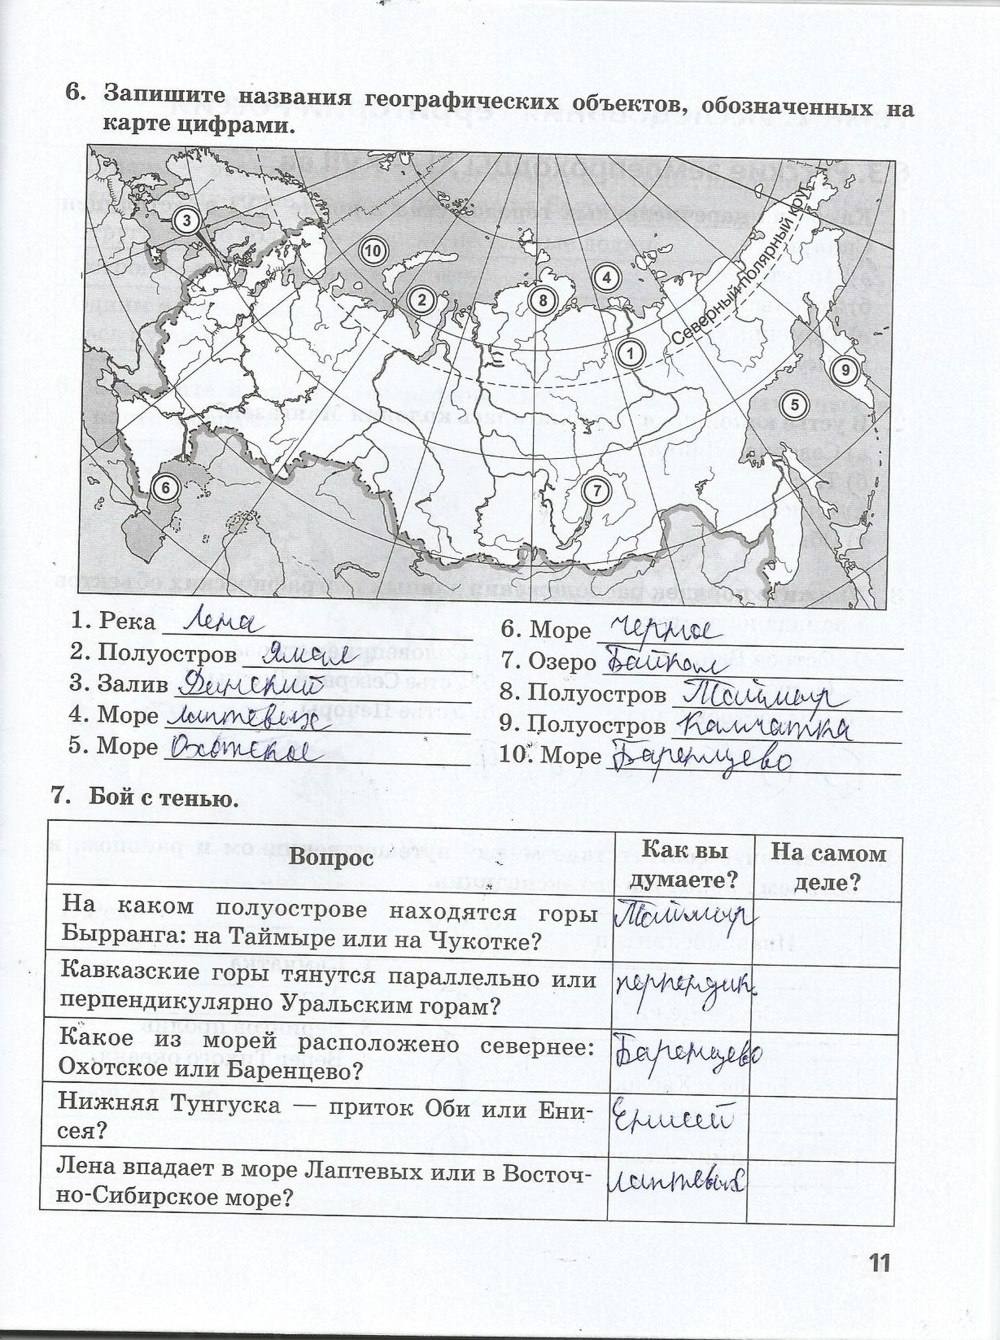 6. Запишите названия географических объектов, обозначенных на
карте цифрами.
3
10
2
8
4
Северный полярный круг
1
9
5
6
7
1. Река Лена
2. Полуостров Ямал
3. Залив Финский
4. Море Лаптевых
5. Море Охотское
6. Море Черное
7. Озеро Байкал
8. Полуостров Таймыр
9. Полуостров Камчатка
10. Море Баренцево
7. Бой с тенью.
Вопрос
Как вы
думаете?
На самом
деле?
На каком полуострове находятся горы
Бырранга: на Таймыре или на Чукотке?
Таймыр
Кавказские горы тянутся параллельно или
перпендикулярно Уральским горам?
перпендик.
Какое из морей расположено севернее:
Охотское или Баренцево?
Баренцево
Нижняя Тунгуска — приток Оби или Ени-
сея?
Енисей
Лена впадает в море Лаптевых или в Восточ-
но-Сибирское море?
лаптевых
11